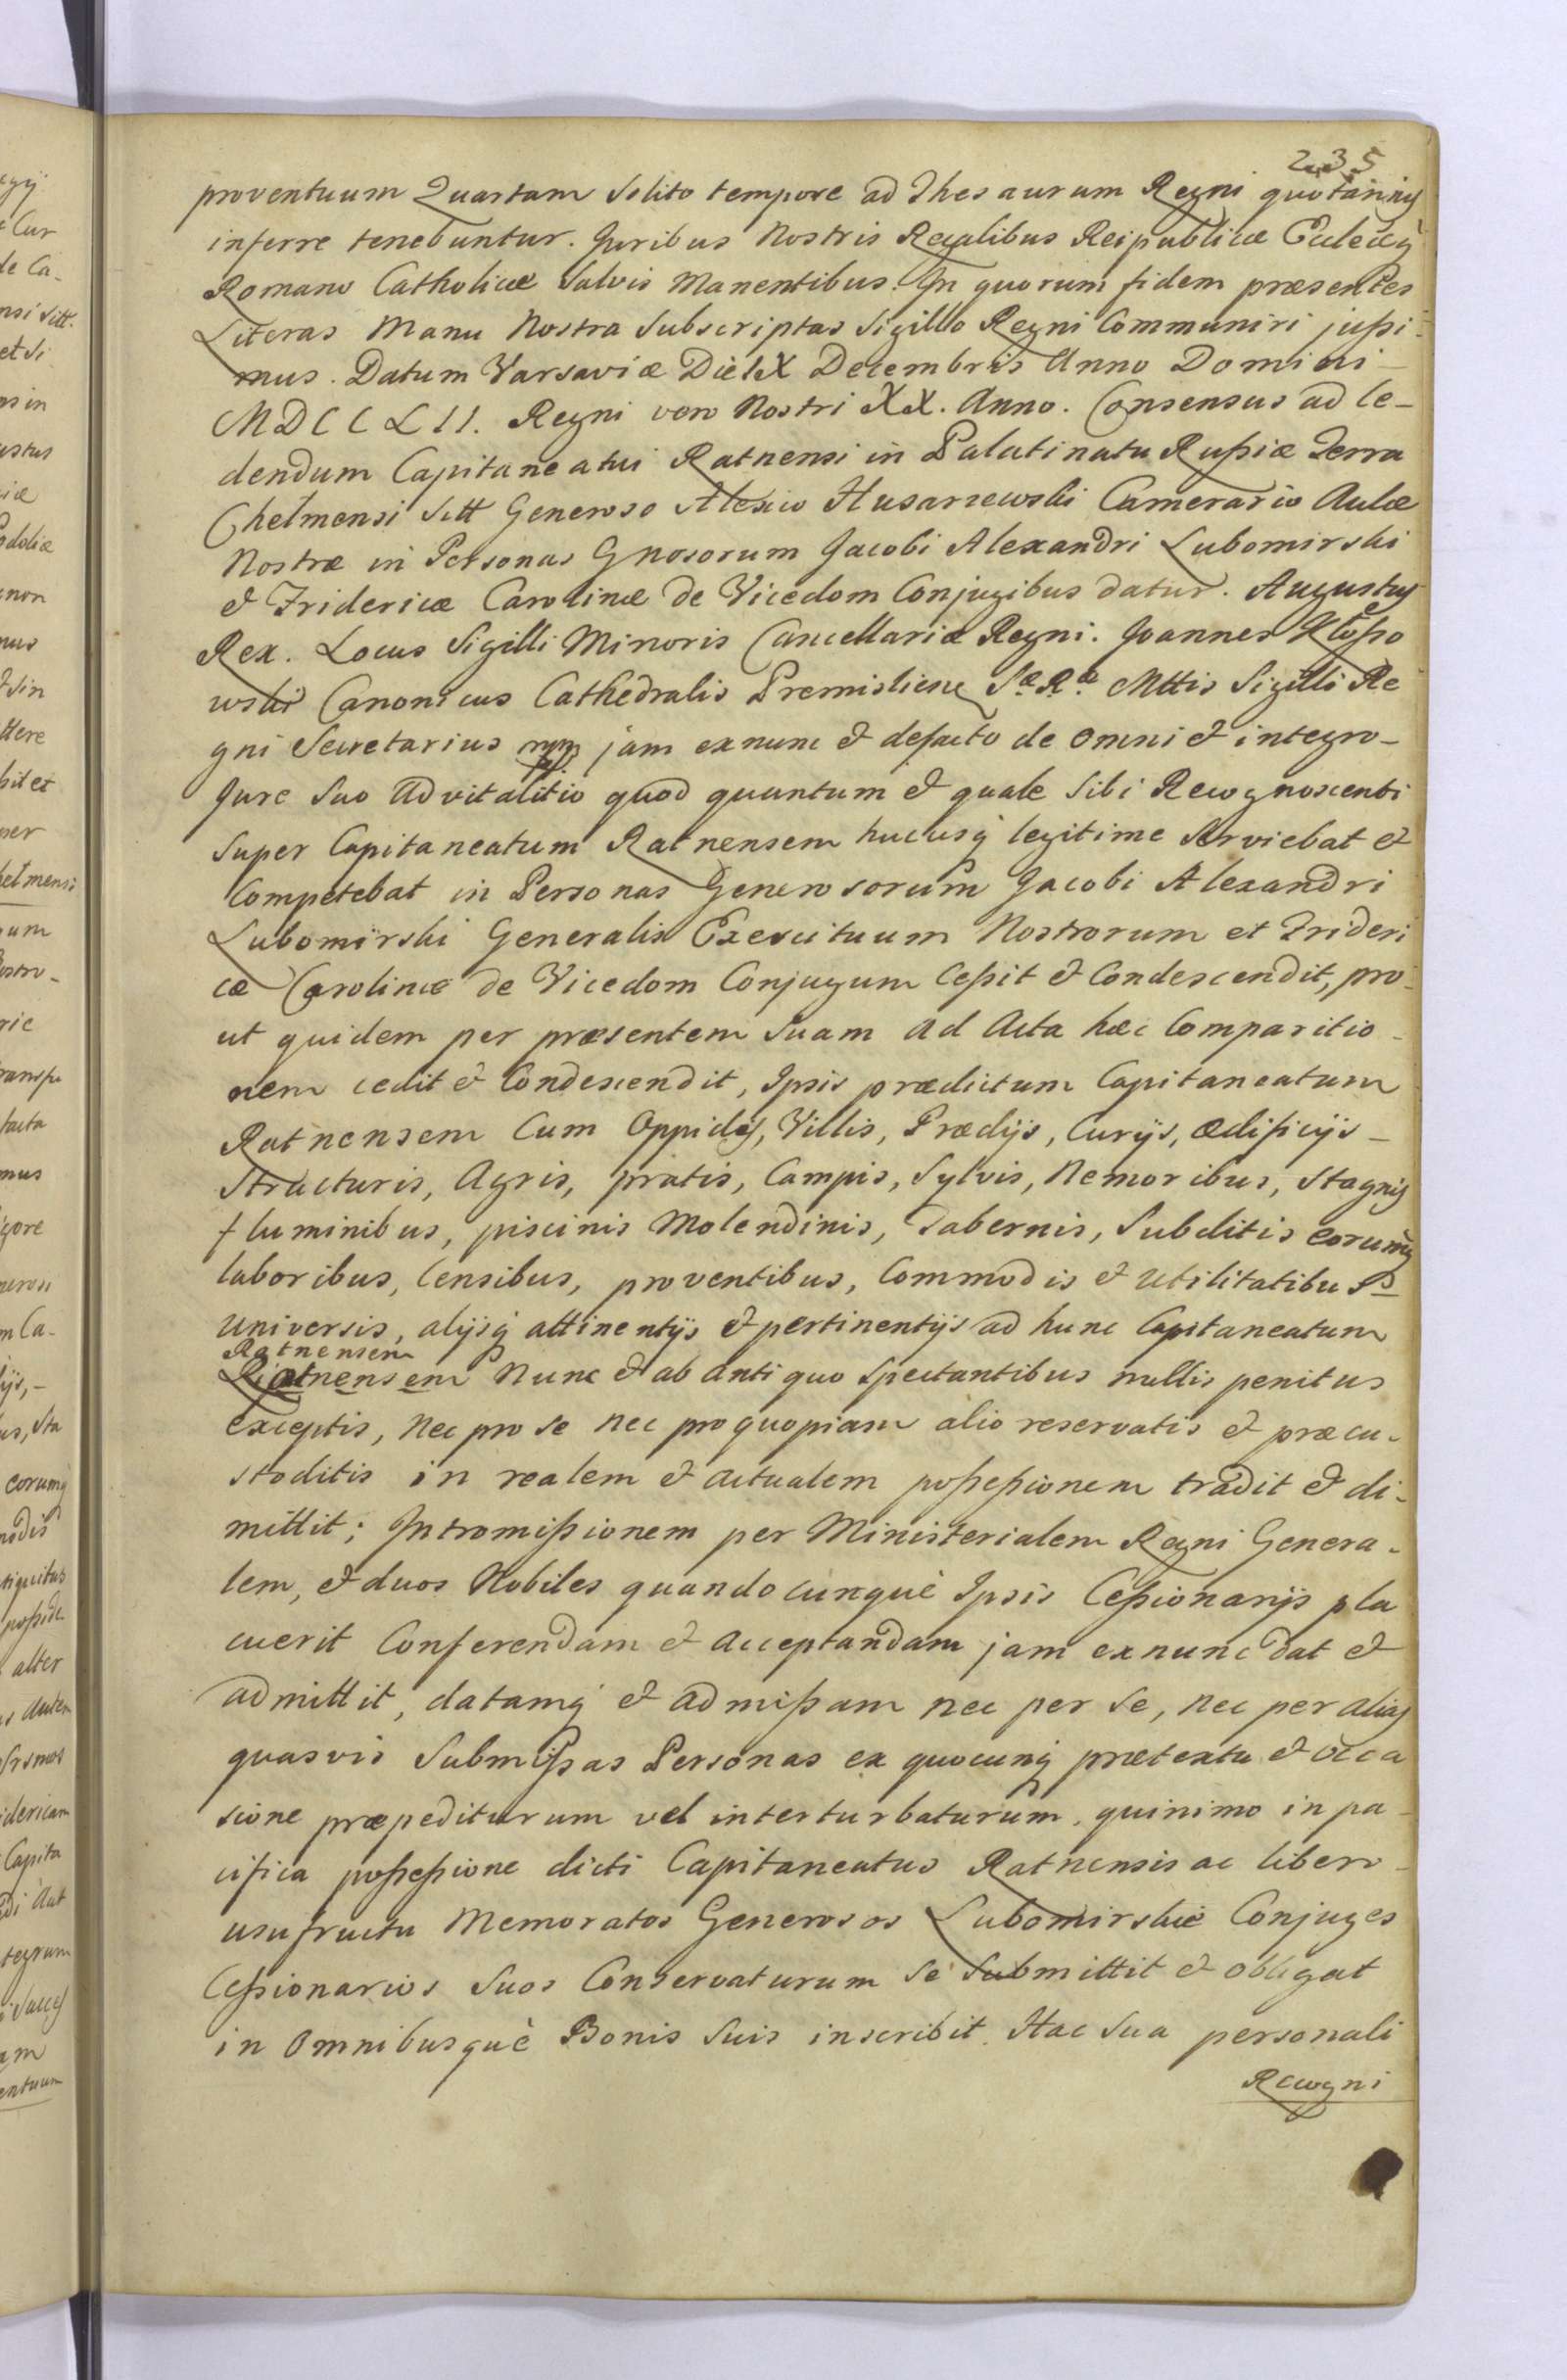 235
proventuum Quartam solito tempore ad Thesaurum Regni quotannis
inferre tenebuntur. Juribus Nostris Regalibus Reipublicæ Ecclesiæq́
Romano Catholicæ Salvis Manentibus. In quorum fidem præsentes
Literas Manu Nostra Subscriptas Sigillo Regni Communiri jussi-
mus. Datum Varsaviæ Die IX Decembris Anno Domini
MDCCLII. Regni vero Nostri XX. Anno. Consensus ad Ce-
dendum Capitaneatui Ratnensi in Palatinatu Russiæ Terra
Chelmensi Sitt Generoso Alexio Husarzewski Camerario Aulæ
Nostræ in Personas Gnosorum Jacobi Alexandri Lubomirski
& Fridericæ Carolinæ de Vicedom Conjugibus datur. Augustus
Rex. Locus Sigilli Minoris Cancellariæ Regni. Joannes Kłosso
wski Canonicus Cathedralis Premisliens Sæ Ræ Mttis Sigilli Re
gni Secretarius jam exnunc & defacto de omni & integro-
Jure Suo Advitalitio quod quantum & quale Sibi Recognoscenti
Super Capitaneatum Ratnensem hucusq́ legitime Serviebat &
Competebat in Personas Generosorum Jacobi Alexandri
Lubomirski Generalis Exercituum Nostrorum et Frideri
cæ Carolinæ de Vicedom Conjugum Cessit & Condescendit, pro-
ut quidem per præsentem Suam ad Acta hæc Comparitio-
nem cedit & Condescendit, Ipsis prædictum Capitaneatum
Ratnensem Cum Oppidis, Villis, Prædijs, Curijs, ædificijs-
Structuris, Agris, pratis, Campis, Sylvis, Nemoribus, Stagnis
fluminibus, piscinis Molendinis, Tabernis, Subditis eorumq́
laboribus, Censibus, proventibus, Commodis & Utilitatibus
Universis, alijsq́ attinentijs & pertinentijs ad hunc Capitaneatum
Ratnensem
Riatnensem Nunc & ab antiquo Spectantibus nullis penitus
exceptis, Nec pro se nec pro quopiam alio reservatis & præcu-
stoditis in realem & actualem possessionem tradit & di-
mittit; Intromissionem per Ministerialem Regni Genera-
lem, & duos Nobiles quandocunquè Ipsis Cessionarijs pla
cuerit Conferendam & acceptandam jam exnunc dat &
admittit, datamq́ & admissam nec per se, nec per alias
quasvis Submissas Personas ex quocunq́ prætextu & occa
sione præpediturum vel interturbaturum, quinimo in pa-
cifica possessione dicti Capitaneatus Ratnensis ac libero-
usufructu Memoratos Generosos Lubomirskie Conjuges
Cessionarios Suos Conservaturum Se Submittit & obligat
in Omnibusquè Bonis Suis inscribit. Hac Sua personali
Recogni